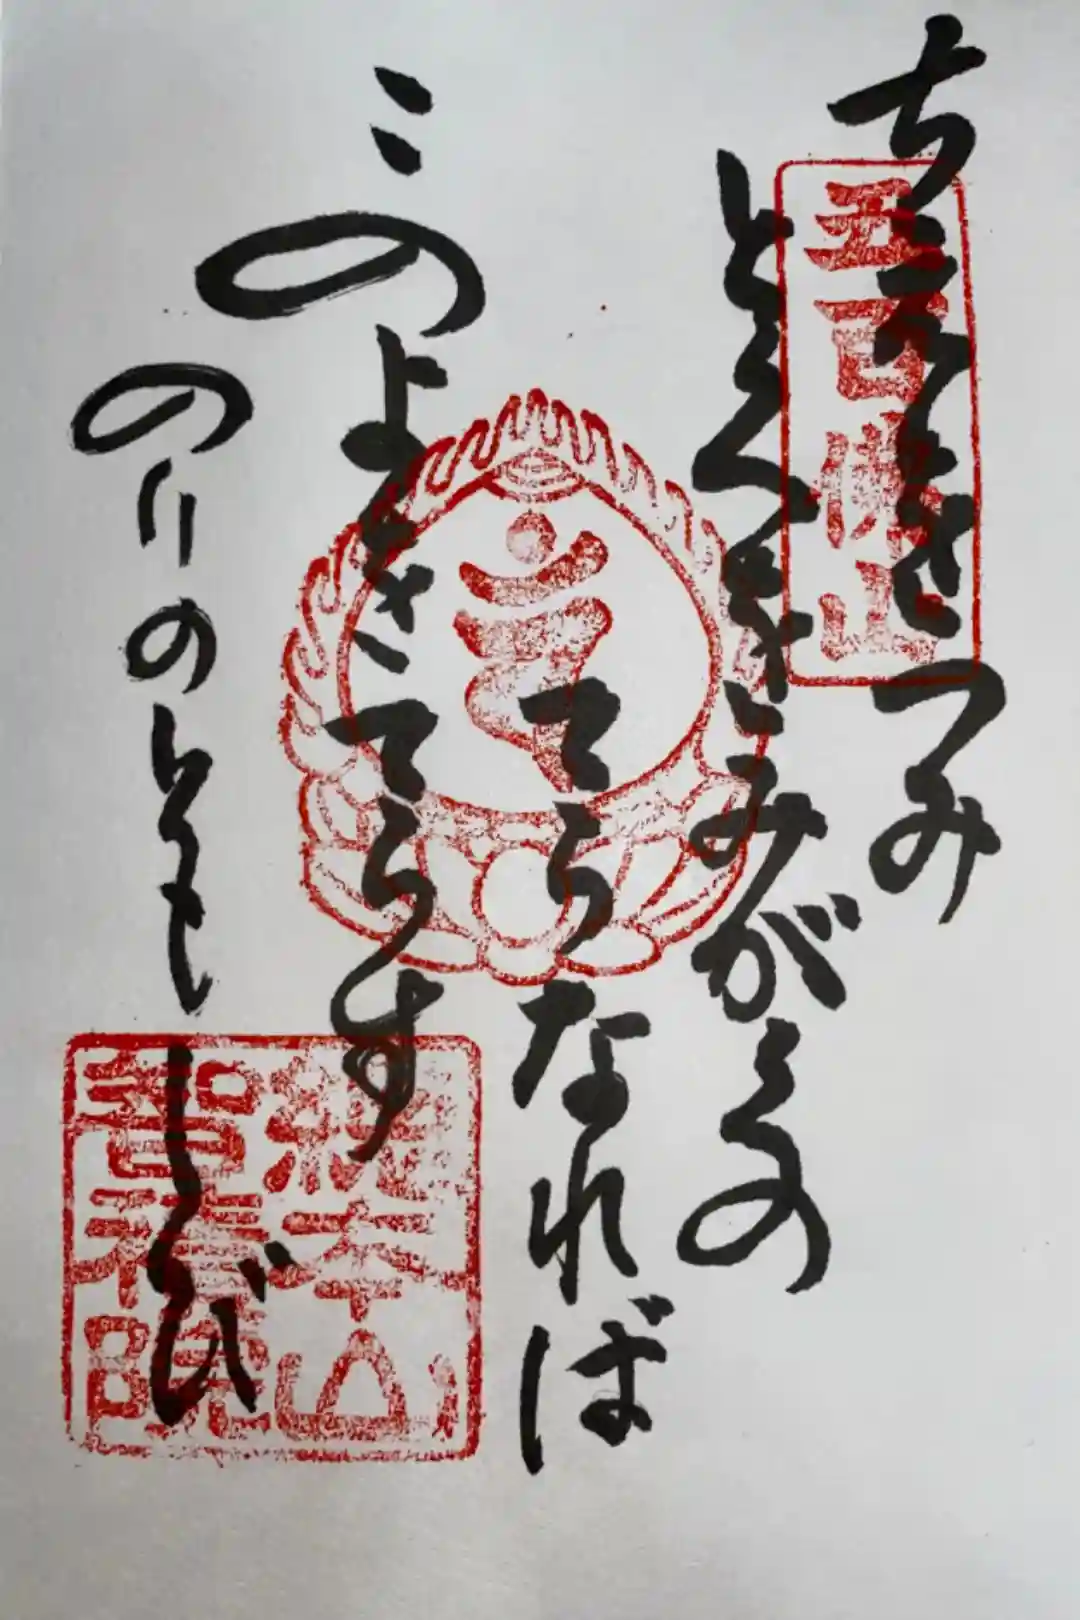 五百佛山
ちゑをつみ
とくをみがくの
てらなれば
このよをてらす
のりのともしび
總本山
智積院